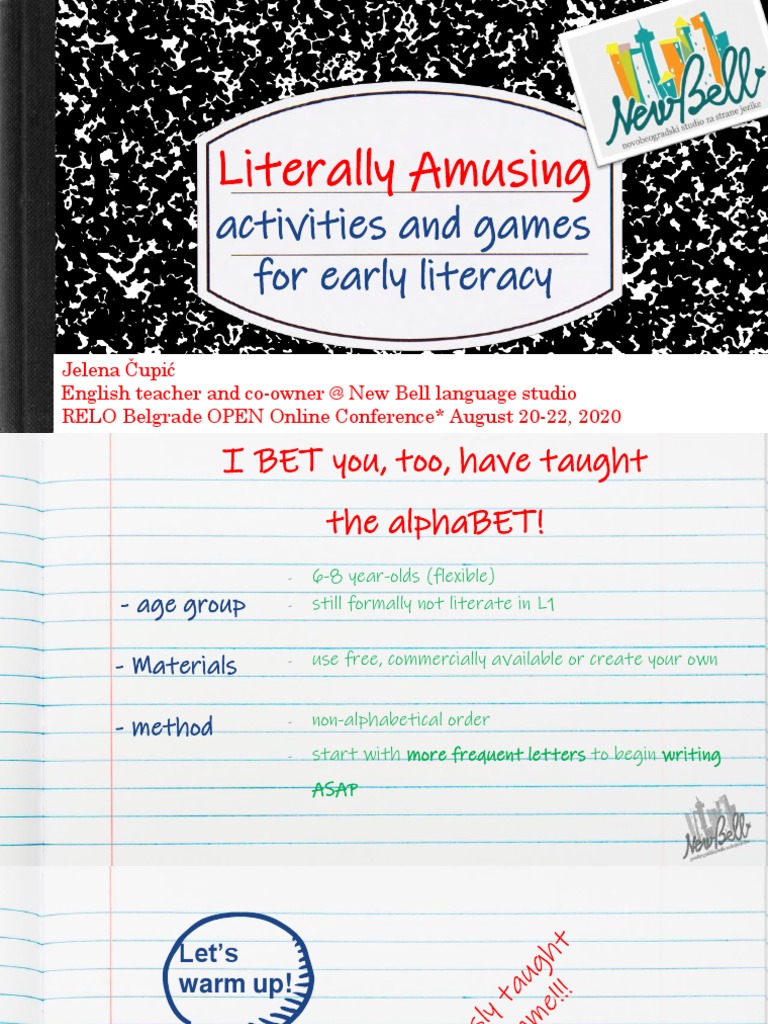 New Bell
novobeogradski studio za strane jezike
Literally Amusing
activities and games
for early literacy
Jelena Čupić
English teacher and co-owner @ New Bell language studio
RELO Belgrade OPEN Online Conference* August 20-22, 2020
I BET you, too, have taught
the alphaBET!
- age group
- 6-8 year-olds (flexible)
- still formally not literate in L1
- Materials
- use free, commercially available or create your own
- method
- non-alphabetical order
- start with more frequent letters to begin writing
ASAP
New Bell
Let's
warm up!
taught